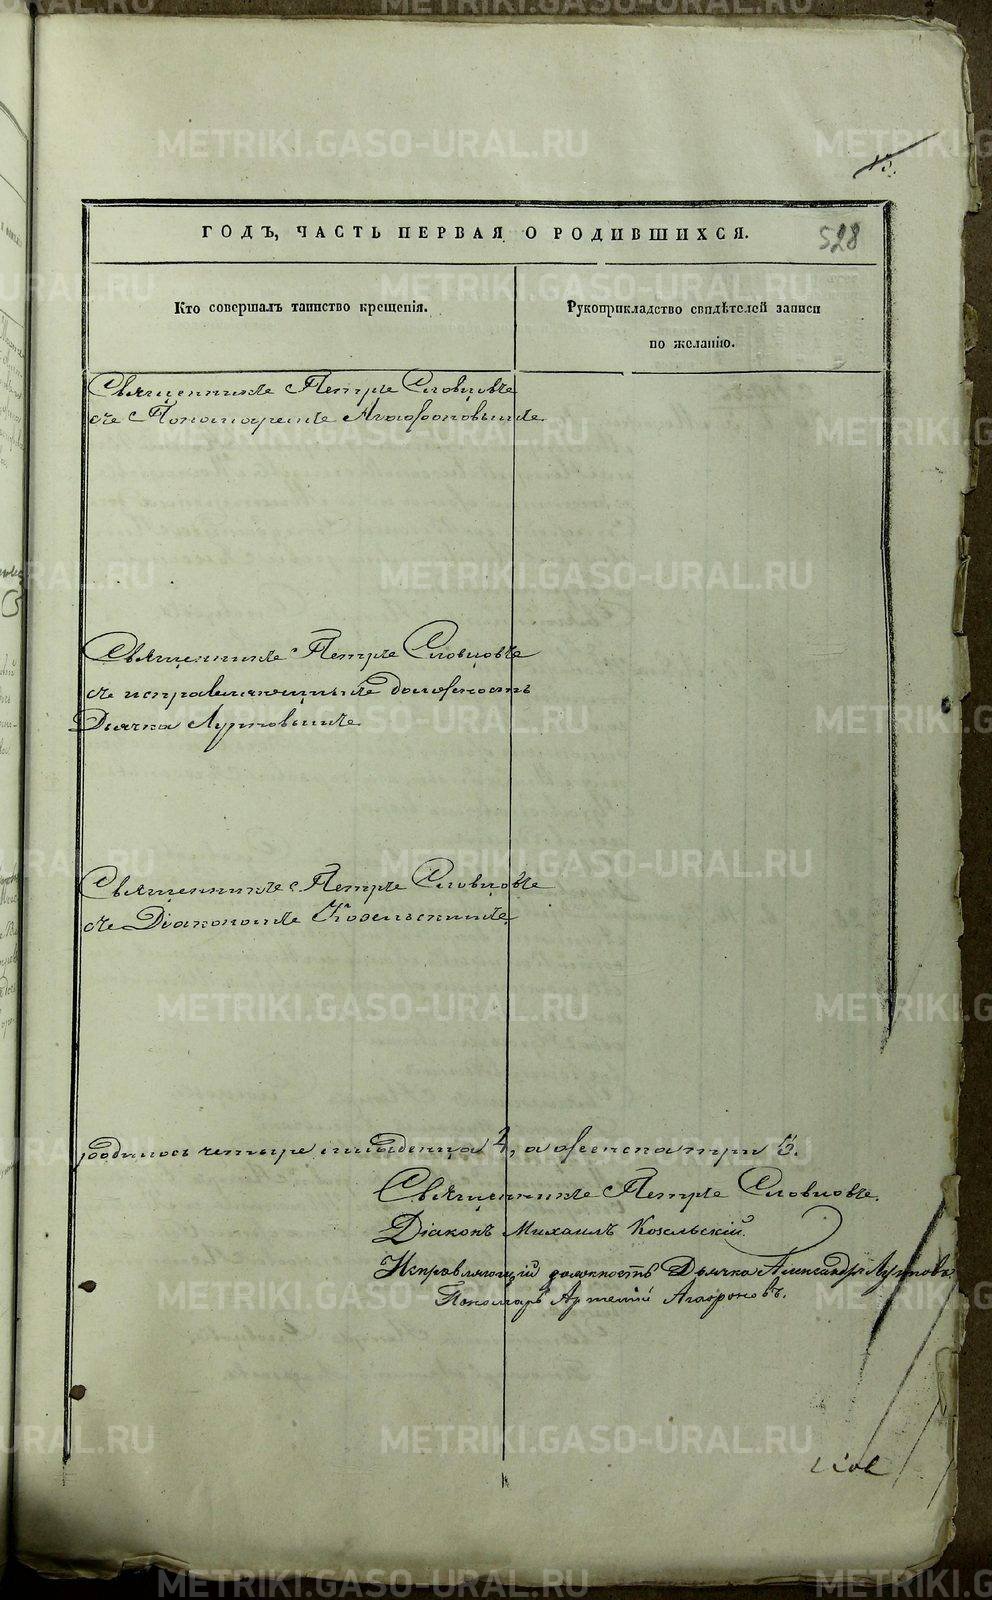 15.
ГОДЪ, ЧАСТЬ ПЕРВАЯ О РОДИВШИХСЯ.
528
Кто совершалъ таинство крещенія.
Рукоприкладство свидѣтелей записи
по желанію.
Священникъ Петръ Словцовъ
съ Пономаремъ Агафоновымъ
Священникъ Петръ Словцовъ
съ исправляющимъ должность
Дьячка Луповымъ
Священникъ Петръ Словцовъ
съ Діакономъ Козельскимъ
родилось четыре младенца 4, а женска три 3.
Священникъ Петръ Словцовъ.
Діаконъ Михаилъ Козельскій.
Исправляющій должность Дьячка Александръ Луповъ
Пономарь Артемій Агафоновъ.
METRIKI.GASO-URAL.RU